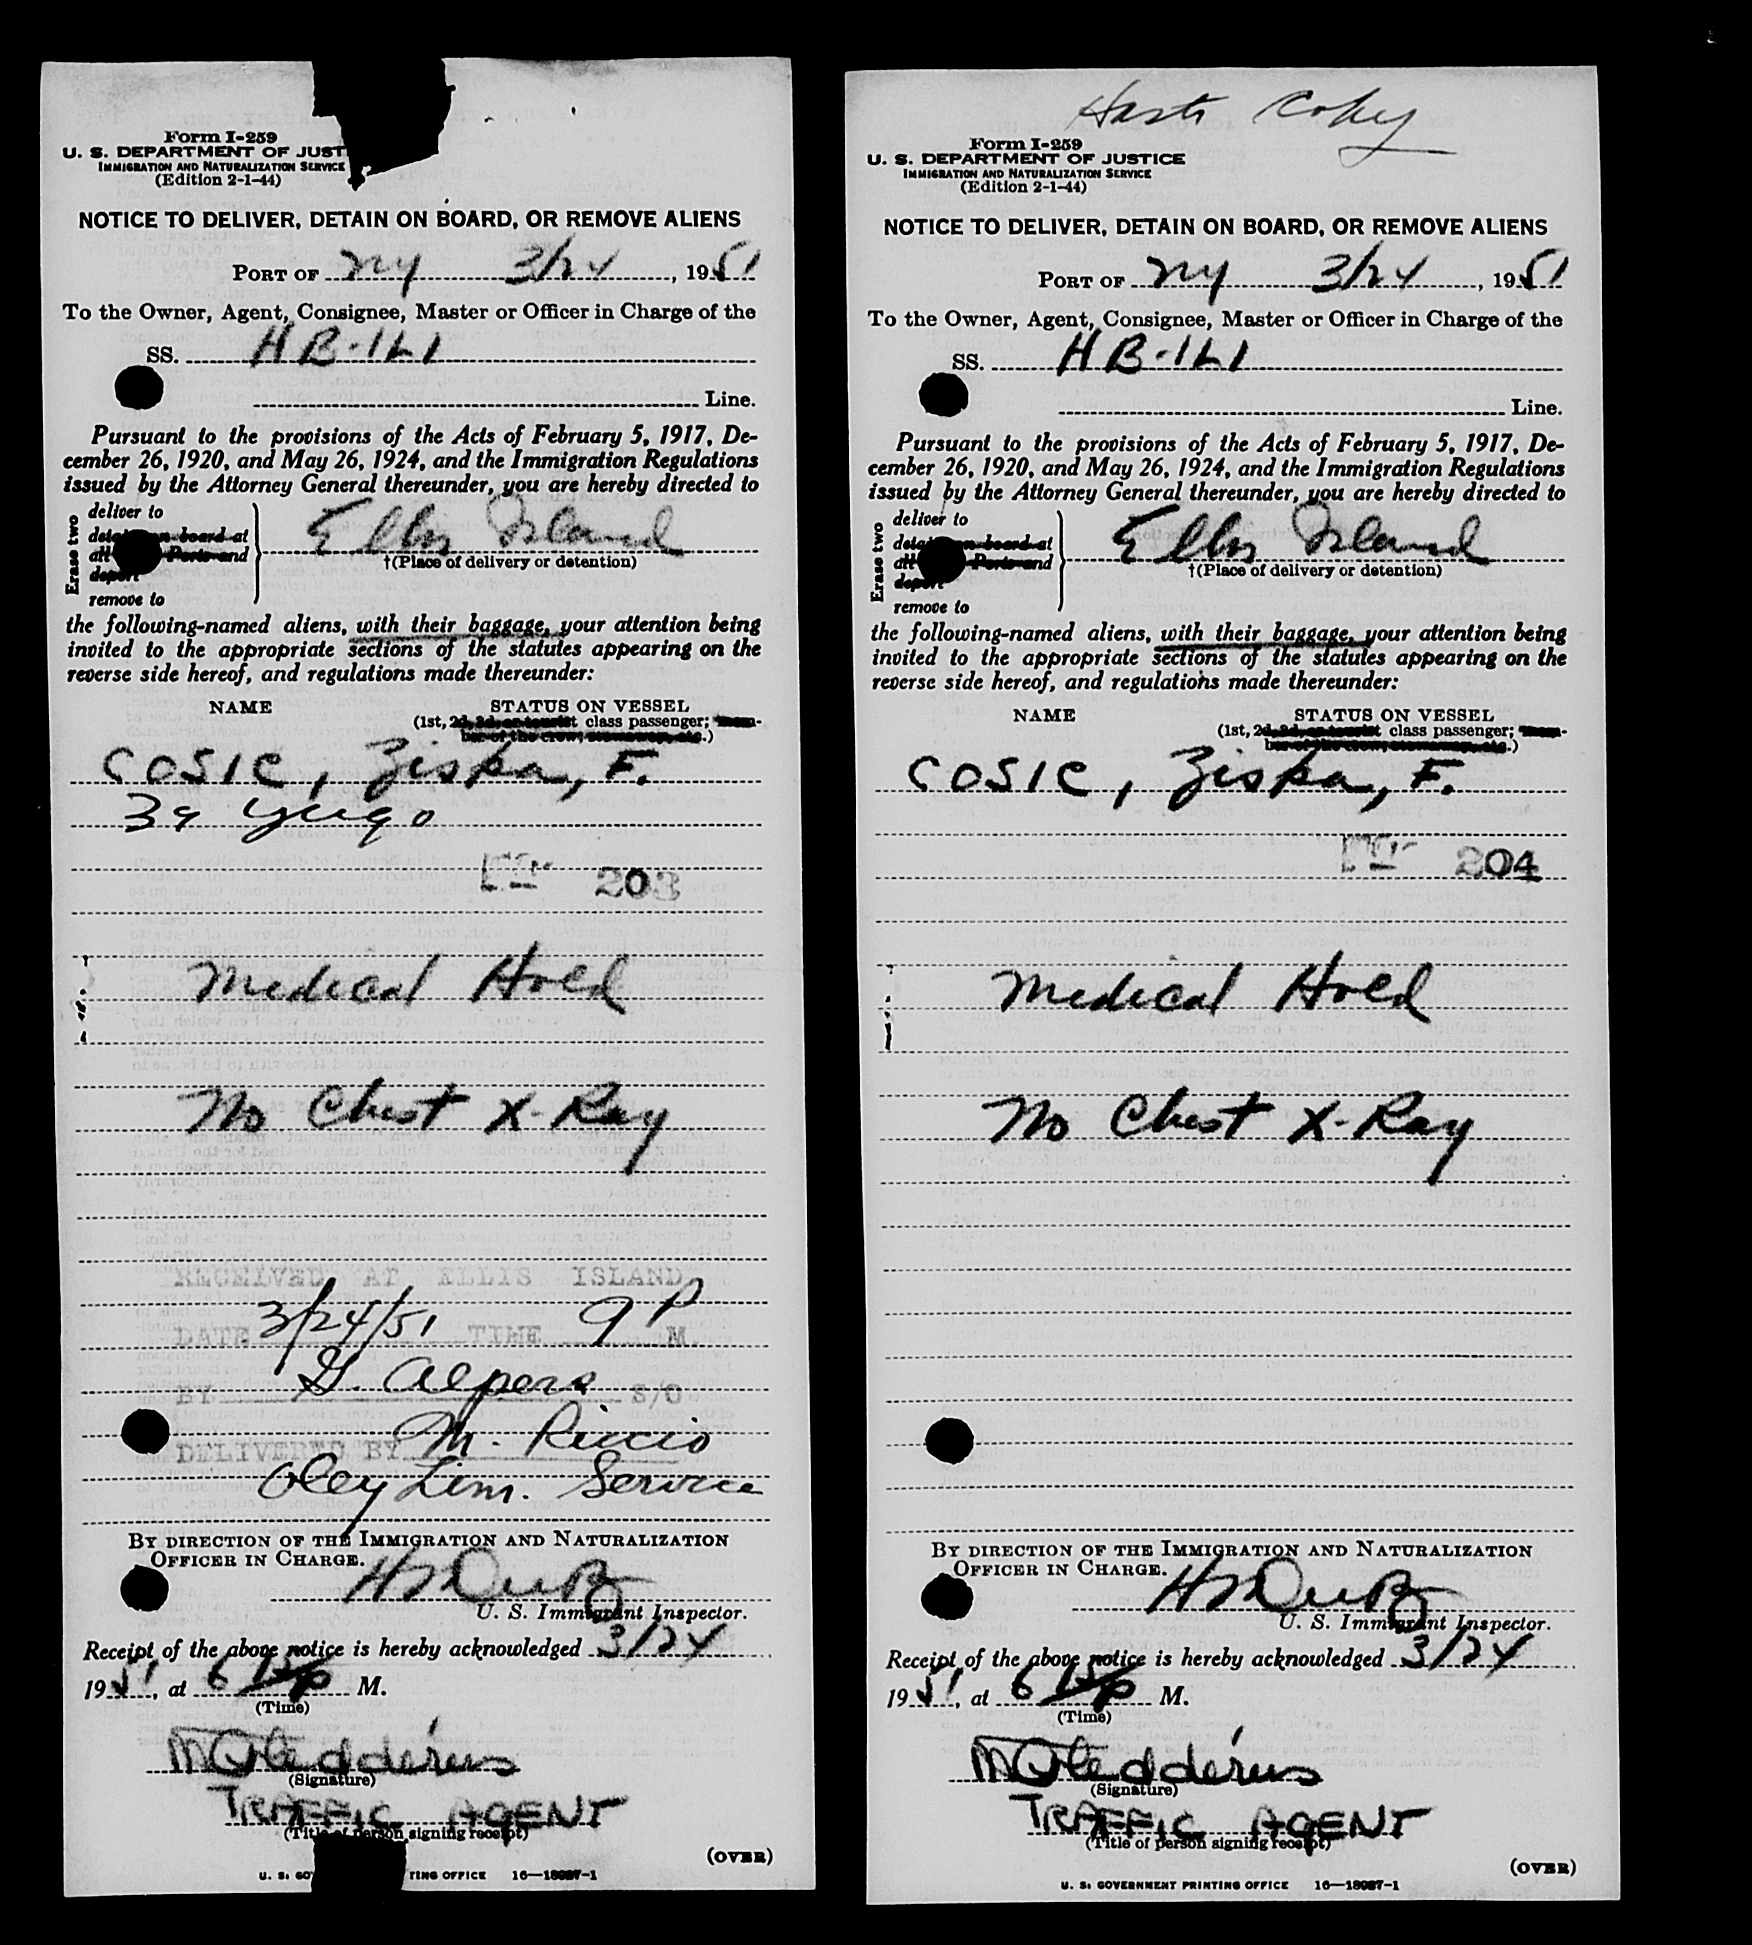 Form I-259
U. S. DEPARTMENT OF JUST
IMMIGRATION AND NATURALIZATION SERVICE
(Edition 2-1-44)
NOTICE TO DELIVER, DETAIN ON BOARD, OR REMOVE ALIENS
PORT OF NY 3/24, 1951
To the Owner, Agent, Consignee, Master or Officer in Charge of the
SS. HB-ILI
Line.
Pursuant to the provisions of the Acts of February 5, 1917, De-
cember 26, 1920, and May 26, 1924, and the Immigration Regulations
issued by the Attorney General thereunder, you are hereby directed to
Erase two
deliver to
on board at
all Ports and
deport
remove to
Ellis Island
†(Place of delivery or detention)
the following-named aliens, with their baggage, your attention being
invited to the appropriate sections of the statutes appearing on the
reverse side hereof, and regulations made thereunder:
NAME STATUS ON VESSEL
(1st, 2d, 3d, or tourist class passenger; mem-
ber of the crew; stowaway, etc.)
COSIC, Ziska, F.
39 Yugo
203
Medical Hold
No Chest X-Ray
RECEIVED AT ELLIS ISLAND
DATE 3/24/51 TIME 9 P M.
BY G. Alpers S/O
DELIVERED BY M. Riccio
Oley Lim. Service
BY DIRECTION OF THE IMMIGRATION AND NATURALIZATION
OFFICER IN CHARGE.
U. S. Immigrant Inspector.
Receipt of the above notice is hereby acknowledged 3/24
1951, at 6 15 p M.
(Time)
(Signature)
TRAFFIC AGENT
(Title of person signing receipt)
(OVER)
U. S. GO TING OFFICE 16—18987-1
Copy
Form I-259
U. S. DEPARTMENT OF JUSTICE
IMMIGRATION AND NATURALIZATION SERVICE
(Edition 2-1-44)
NOTICE TO DELIVER, DETAIN ON BOARD, OR REMOVE ALIENS
PORT OF NY 3/24, 1951
To the Owner, Agent, Consignee, Master or Officer in Charge of the
SS. HB-ILI
Line.
Pursuant to the provisions of the Acts of February 5, 1917, De-
cember 26, 1920, and May 26, 1924, and the Immigration Regulations
issued by the Attorney General thereunder, you are hereby directed to
Erase two
deliver to
on board at
all Ports and
deport
remove to
Ellis Island
†(Place of delivery or detention)
the following-named aliens, with their baggage, your attention being
invited to the appropriate sections of the statutes appearing on the
reverse side hereof, and regulations made thereunder:
NAME STATUS ON VESSEL
(1st, 2d, 3d, or tourist class passenger; mem-
ber of the crew; stowaway, etc.)
COSIC, Ziska, F.
204
Medical Hold
No Chest X-Ray
BY DIRECTION OF THE IMMIGRATION AND NATURALIZATION
OFFICER IN CHARGE.
U. S. Immigrant Inspector.
Receipt of the above notice is hereby acknowledged 3/24
1951, at 6 15 p M.
(Time)
(Signature)
TRAFFIC AGENT
(Title of person signing receipt)
(OVER)
U. S. GOVERNMENT PRINTING OFFICE 16—18987-1